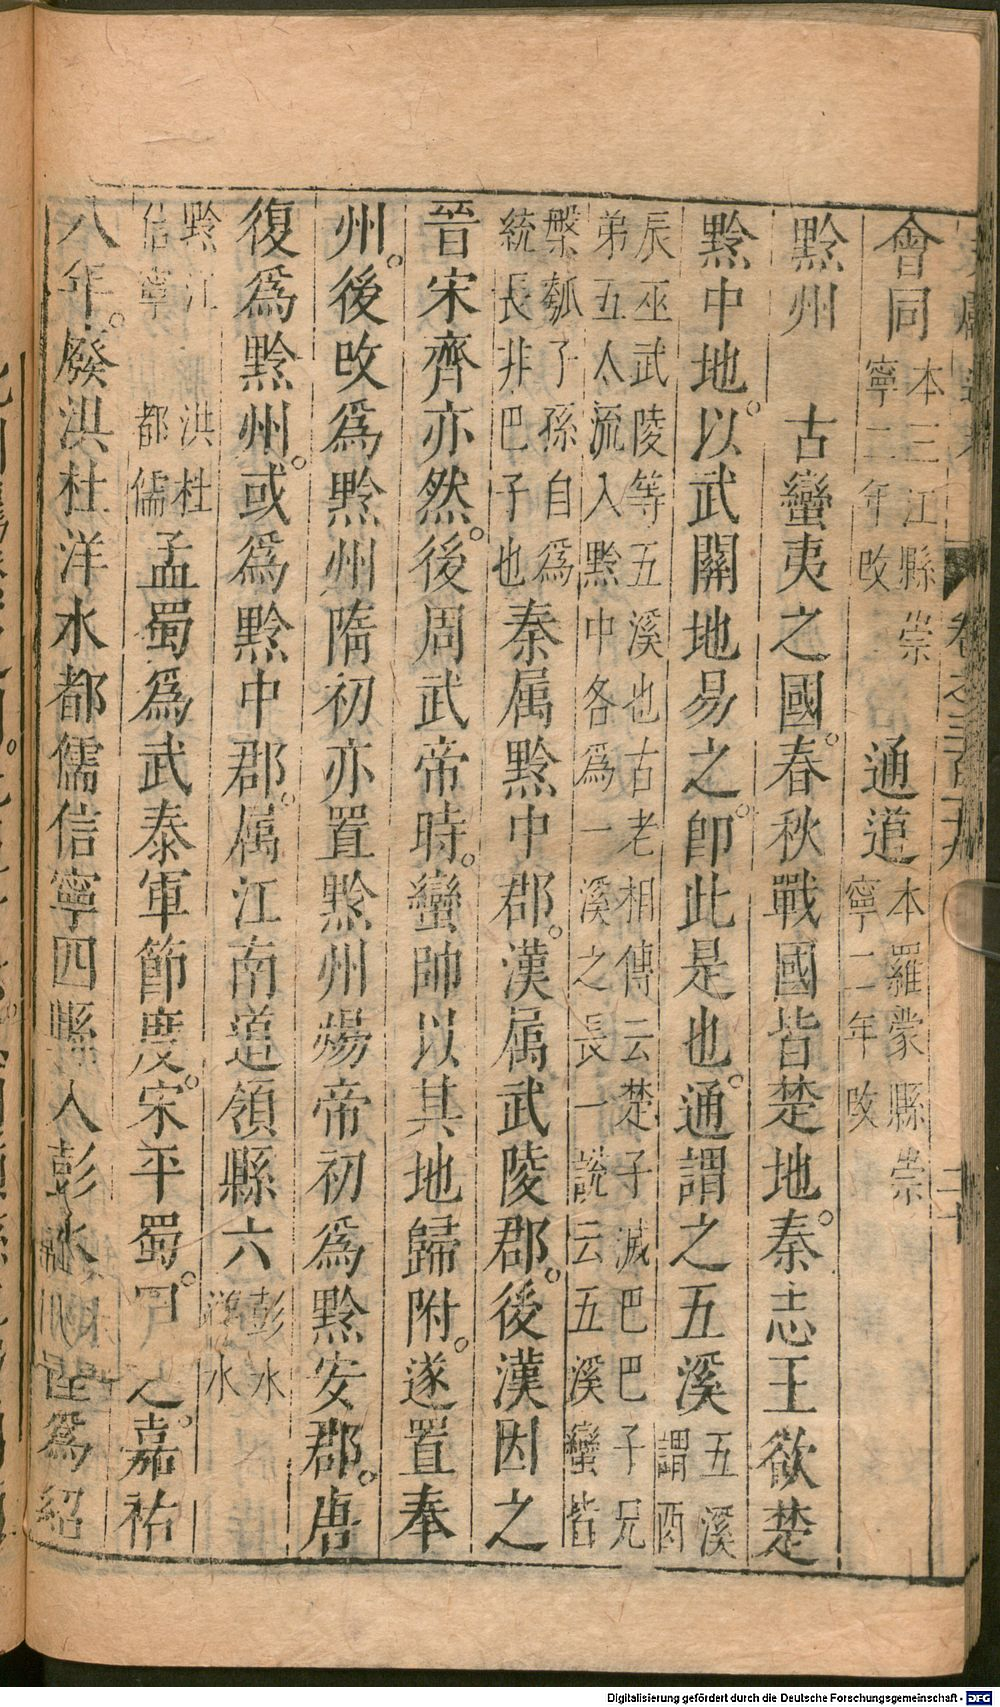 會同本三江縣崇寧二年改　通道本羅蒙縣崇寧二年改
黔州　古蠻夷之國。春秋戰國皆楚地。秦志王欲楚
黔中地。以武關地易之。卽此是也。通謂之五溪五溪謂酉
辰巫武陵等五溪也古老相傳云楚子滅巴巴子兄
弟五太流入黔中各爲一溪之長一說云五溪蠻皆
槃瓠子孫自爲統長非巴子也秦属黔中郡。漢属武陵郡。後漢因之
晉宋齊亦然。後周武帝時。蠻帥以其地歸附。遂置奉
州。後改爲黔州隋初亦置黔州煬帝初爲黔安郡。唐
復爲黔州。或爲黔中郡。属江南道領縣六彭水
黔江　洪杜　信寧　都儒孟蜀爲武泰軍節度。宋平蜀。之。嘉祐
八年。廢洪杜洋水都儒信寧四縣入彭水爲紹
卷之三百十九
二十
Digitalisierung gefördert durch die Deutsche Forschungsgemeinschaft - DFG